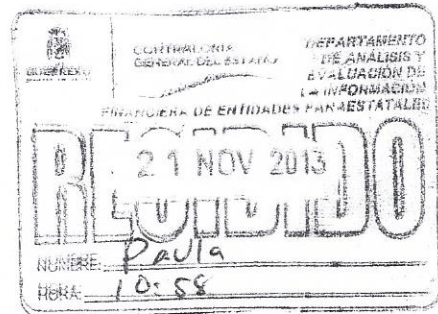 GUERRERO
CONTRALORIA
GENERAL DEL ESTADO
DEPARTAMENTO
DE ANÁLISIS Y
EVALUACIÓN DE
LA INFORMACIÓN
FINANCIERA DE ENTIDADES PARAESTATALES
RECIBIDO
21 NOV 2013
NOMBRE: Paula
HORA: 10:58